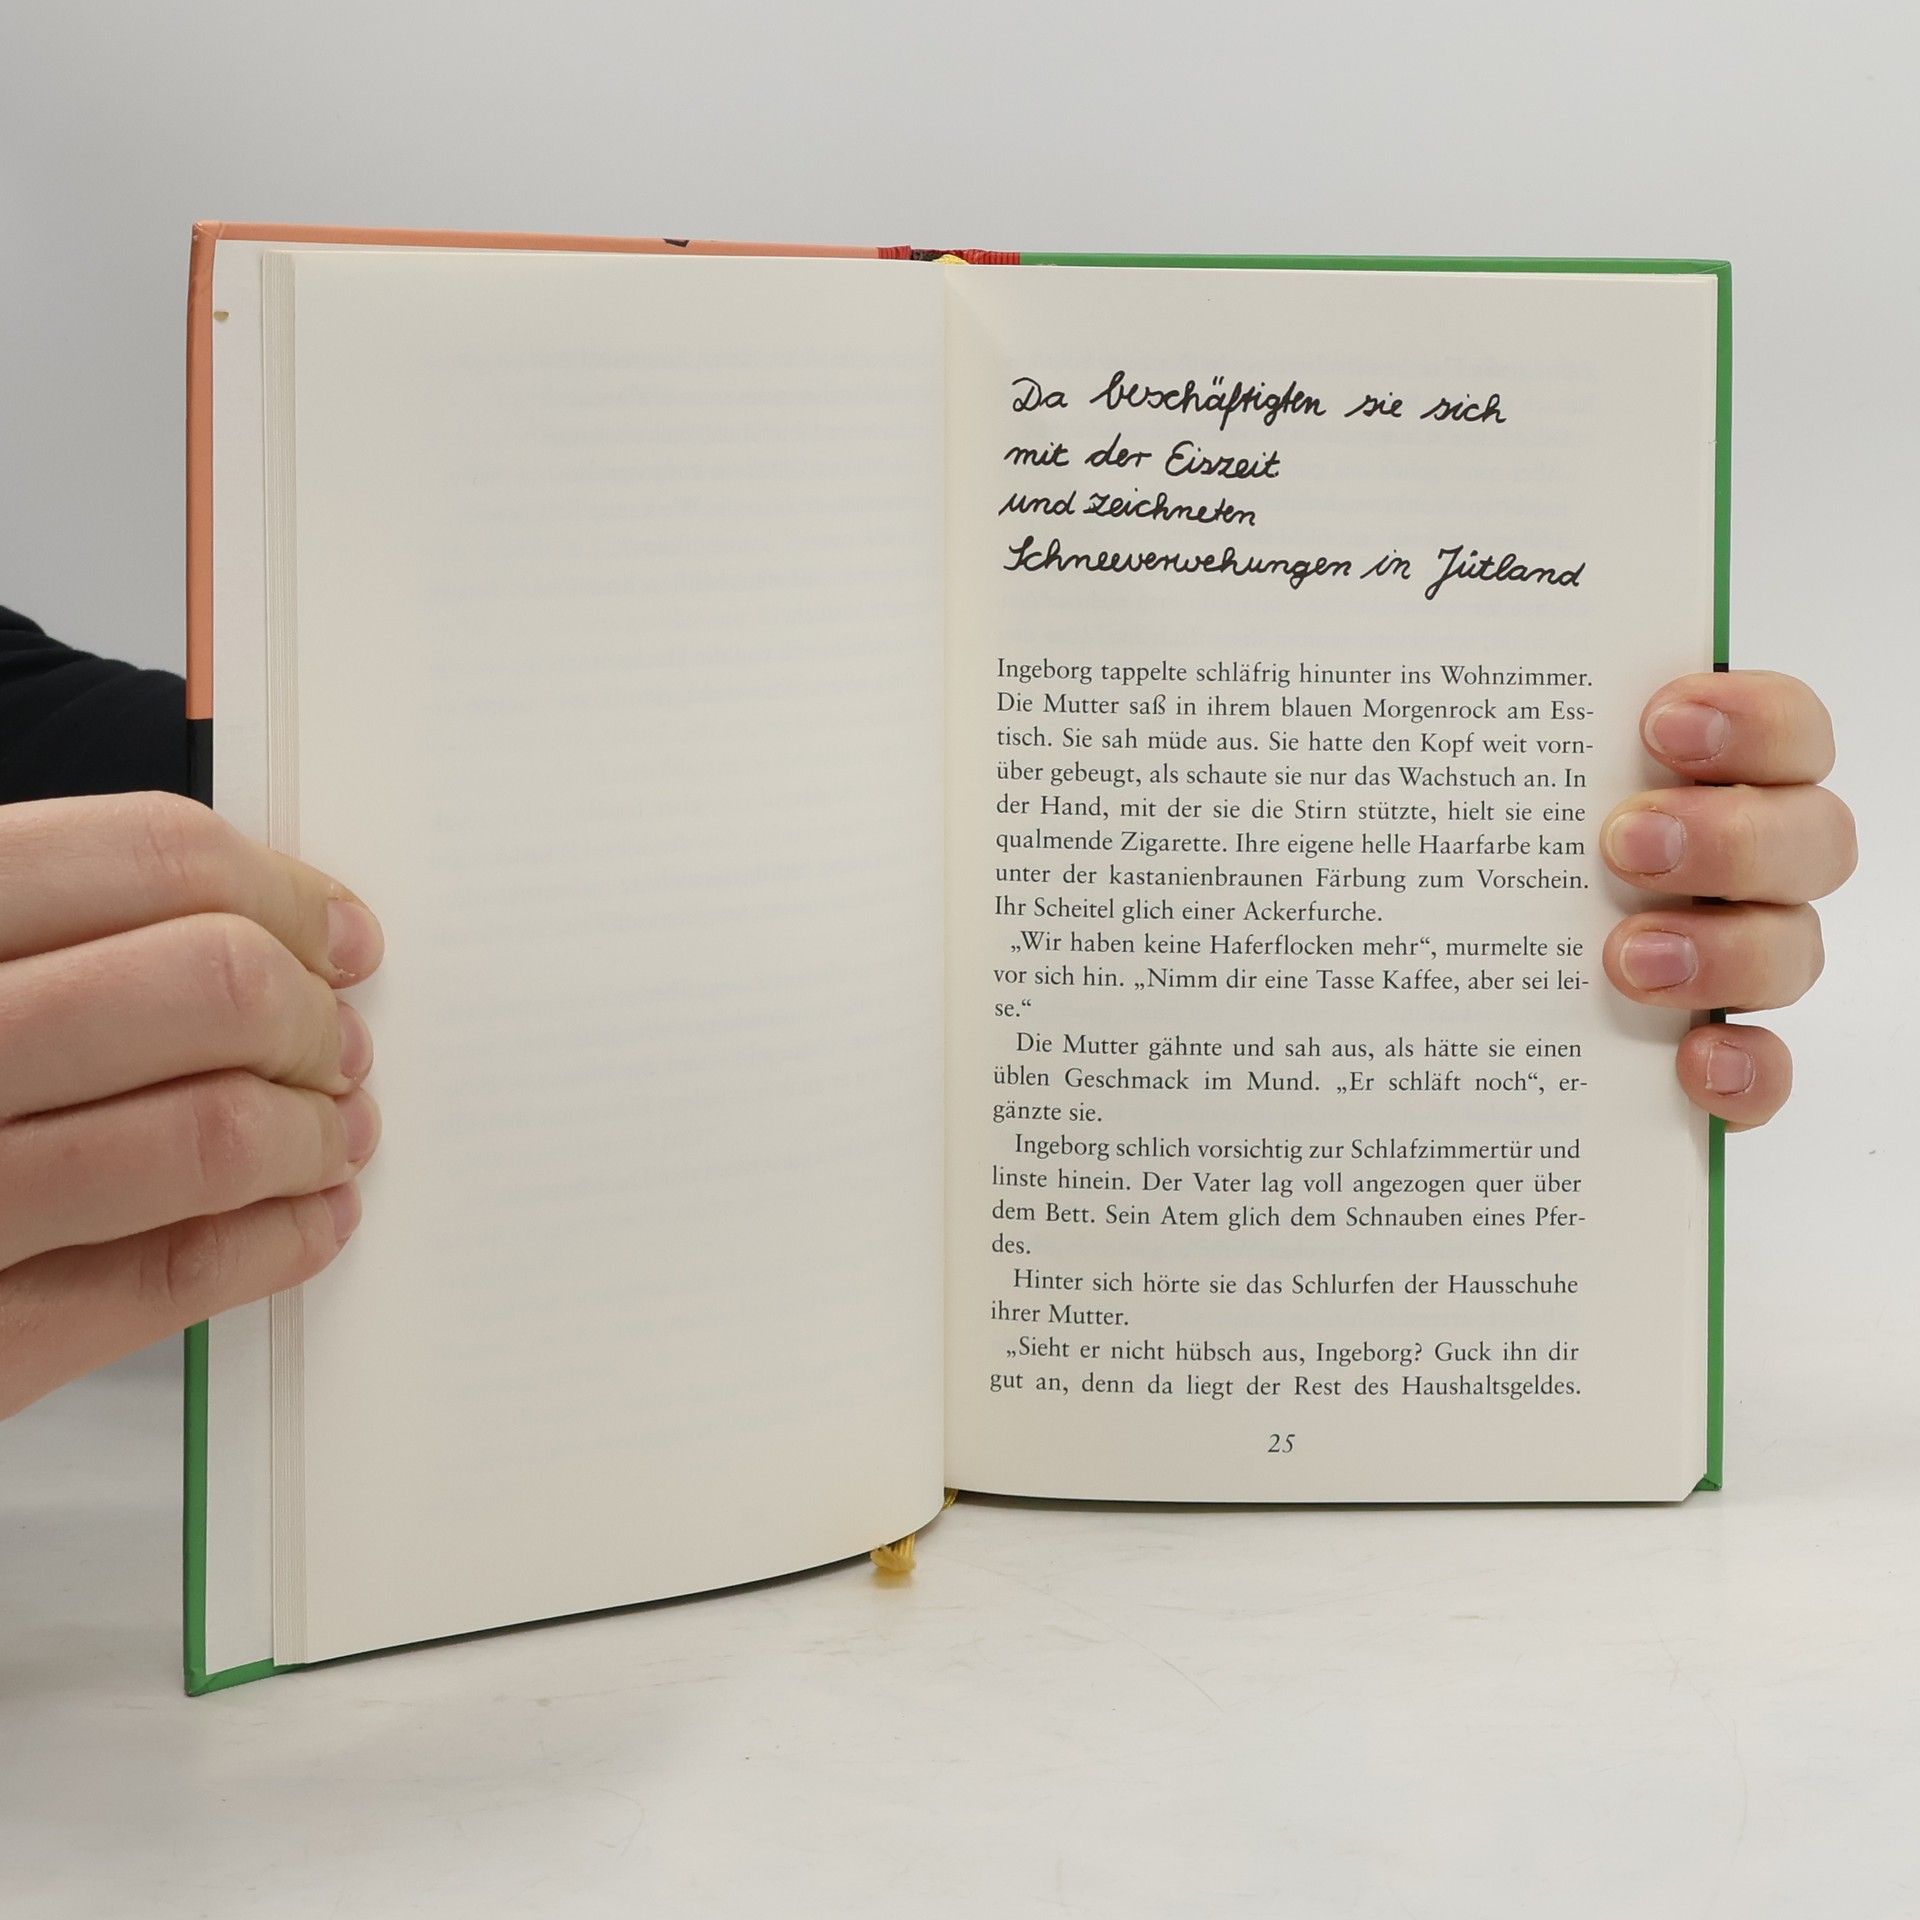 Da beschäftigten sie sich
mit der Eiszeit
und zeichneten
Schneeverwehungen in Jütland
Ingeborg tappelte schläfrig hinunter ins Wohnzimmer.
Die Mutter saß in ihrem blauen Morgenrock am Ess-
tisch. Sie sah müde aus. Sie hatte den Kopf weit vorn-
über gebeugt, als schaute sie nur das Wachstuch an. In
der Hand, mit der sie die Stirn stützte, hielt sie eine
qualmende Zigarette. Ihre eigene helle Haarfarbe kam
unter der kastanienbraunen Färbung zum Vorschein.
Ihr Scheitel glich einer Ackerfurche.
„Wir haben keine Haferflocken mehr“, murmelte sie
vor sich hin. „Nimm dir eine Tasse Kaffee, aber sei lei-
se.“
Die Mutter gähnte und sah aus, als hätte sie einen
üblen Geschmack im Mund. „Er schläft noch“, er-
gänzte sie.
Ingeborg schlich vorsichtig zur Schlafzimmertür und
linste hinein. Der Vater lag voll angezogen quer über
dem Bett. Sein Atem glich dem Schnauben eines Pfer-
des.
Hinter sich hörte sie das Schlurfen der Hausschuhe
ihrer Mutter.
„Sieht er nicht hübsch aus, Ingeborg? Guck ihn dir
gut an, denn da liegt der Rest des Haushaltsgeldes.
25